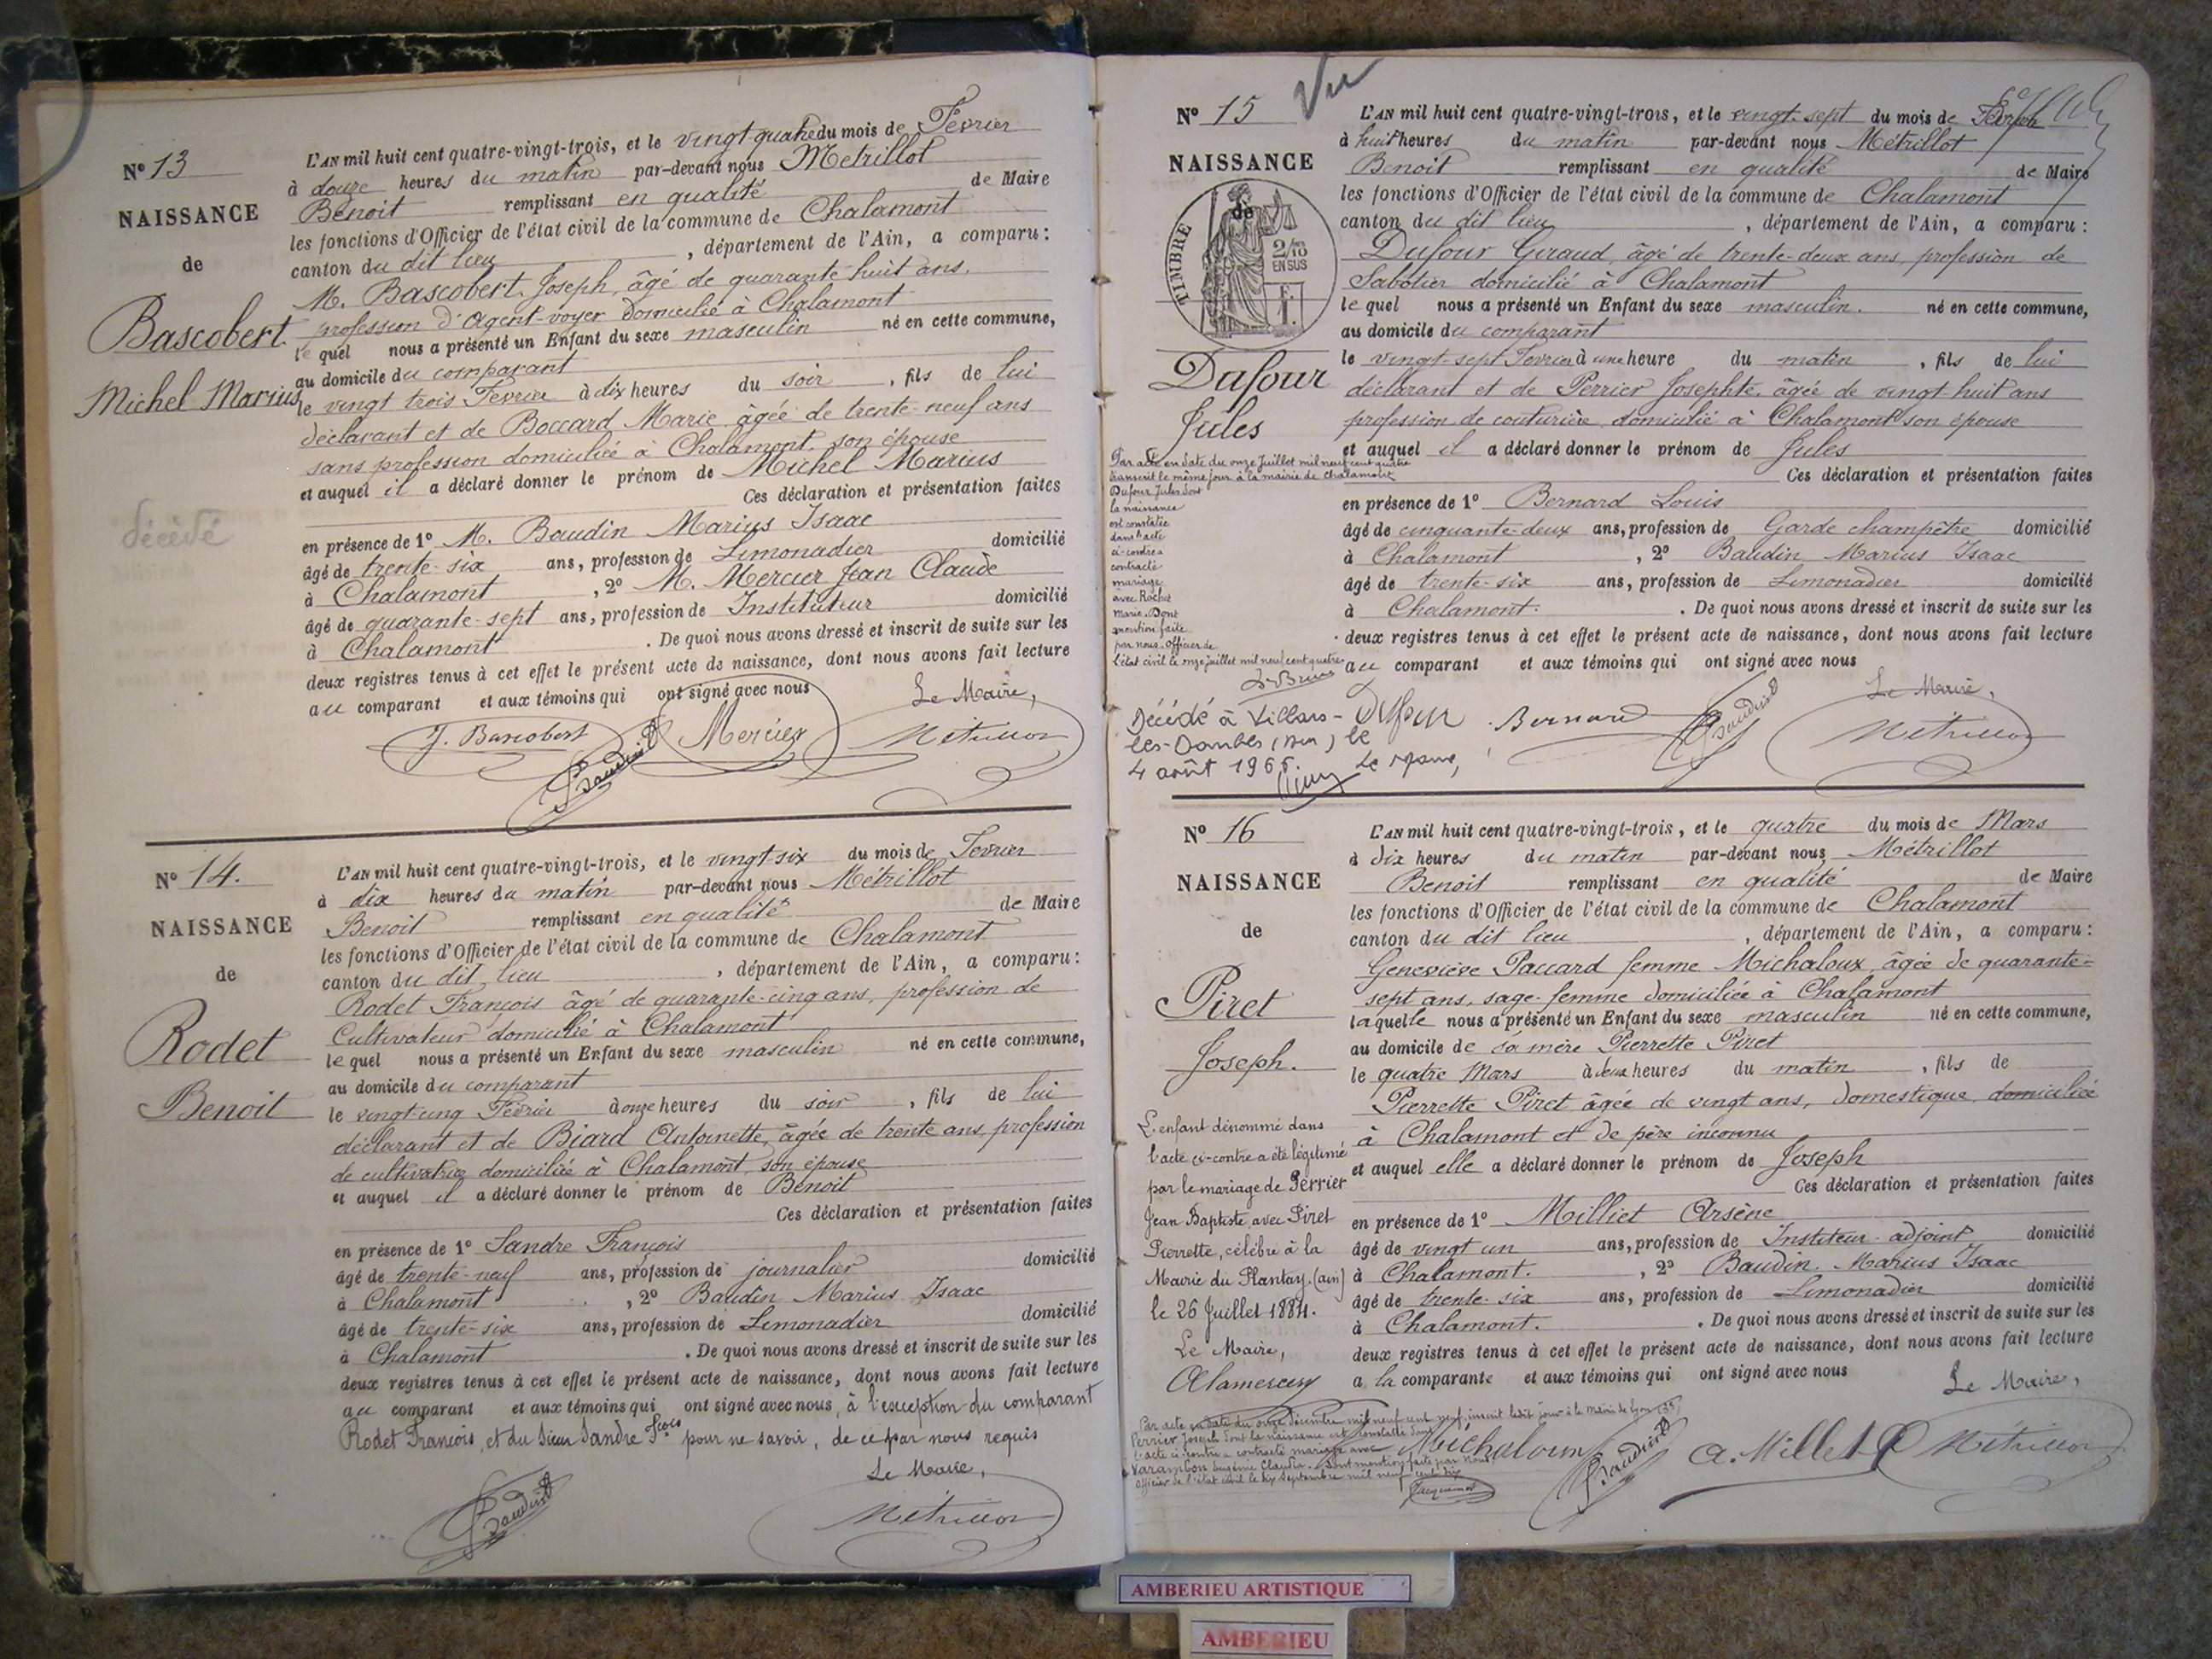 Nº 13
NAISSANCE
de
Bascobert
Michel Marius
décédé
L'AN mil huit cent quatre-vingt-trois, et le vingt quatre du mois de Février
à douze heures du matin par-devant nous Métrillot
Benoit remplissant en qualité de Maire
les fonctions d'Officier de l'état civil de la commune de Chalamont
canton du dit lieu, département de l'Ain, a comparu:
M. Bascobert Joseph, âgé de quarante huit ans,
profession d'agent-voyer domicilié à Chalamont
le quel nous a présenté un Enfant du sexe masculin né en cette commune,
au domicile du comparant
le vingt trois Février à dix heures du soir, fils de lui
déclarant et de Boccard Marie âgée de trente-neuf ans
sans profession domiciliée à Chalamont, son épouse
et auquel il a déclaré donner le prénom de Michel Marius
Ces déclaration et présentation faites
en présence de 1º M. Baudin Marius Isaac
âgé de trente-six ans, profession de Limonadier domicilié
à Chalamont, 2º M. Mercier Jean Claude
âgé de quarante-sept ans, profession de Instituteur domicilié
à Chalamont. De quoi nous avons dressé et inscrit de suite sur les
deux registres tenus à cet effet le présent acte de naissance, dont nous avons fait lecture
au comparant et aux témoins qui ont signé avec nous
Le Maire,
J. Bascobert Baudin Mercier Métrillot
Nº 14.
NAISSANCE
de
Rodet
Benoit
L'AN mil huit cent quatre-vingt-trois, et le vingt-six du mois de Février
à dix heures du matin par-devant nous Métrillot
Benoit remplissant en qualité de Maire
les fonctions d'Officier de l'état civil de la commune de Chalamont
canton du dit lieu, département de l'Ain, a comparu:
Rodet François âgé de quarante-cinq ans, profession de
Cultivateur domicilié à Chalamont
le quel nous a présenté un Enfant du sexe masculin né en cette commune,
au domicile du comparant
le vingt cinq Février à onze heures du soir, fils de lui
déclarant et de Biard Antoinette, âgée de trente ans, profession
de cultivatrice domiciliée à Chalamont, son épouse
et auquel il a déclaré donner le prénom de Benoit
Ces déclaration et présentation faites
en présence de 1º Sandre François
âgé de trente-neuf ans, profession de journalier domicilié
à Chalamont, 2º Baudin Marius Isaac
âgé de trente-six ans, profession de Limonadier domicilié
à Chalamont. De quoi nous avons dressé et inscrit de suite sur les
deux registres tenus à cet effet le présent acte de naissance, dont nous avons fait lecture
au comparant et aux témoins qui ont signé avec nous, à l'exception du comparant
Rodet François, et du Sieur Sandre Fçois pour ne savoir, de ce par nous requis
Le Maire,
Baudin Métrillot
Vu
Nº 15
NAISSANCE
de
TIMBRE
2/10
EN SUS
Dufour
Jules
Par acte en date du onze Juillet mil neuf cent quatre
transcrit le même jour à la mairie de Chalamont
Dufour Jules dont
la naissance
est constatée
dans l'acte
ci-contre a
contracté
mariage
avec Rochet
Marie. Dont
mention faite
par nous Officier de
l'état civil le onze juillet mil neuf cent quatre
Décédé à Villars-
les-Dombes (Ain) le
4 août 1966. Le Maire,
L'AN mil huit cent quatre-vingt-trois, et le vingt-sept du mois de Février
à huit heures du matin par-devant nous Métrillot
Benoit remplissant en qualité de Maire
les fonctions d'Officier de l'état civil de la commune de Chalamont
canton du dit lieu, département de l'Ain, a comparu:
Dufour Geraud, âgé de trente-deux ans, profession de
Sabotier domicilié à Chalamont
le quel nous a présenté un Enfant du sexe masculin. né en cette commune,
au domicile du comparant
le vingt-sept Février à une heure du matin, fils de lui
déclarant et de Perrier Josephte, âgée de vingt huit ans
profession de couturière, domicilié à Chalamont son épouse
et auquel il a déclaré donner le prénom de Jules
Ces déclaration et présentation faites
en présence de 1º Bernard Louis
âgé de cinquante-deux ans, profession de Garde champêtre domicilié
à Chalamont, 2º Baudin Marius Isaac
âgé de trente-six ans, profession de Limonadier domicilié
à Chalamont. De quoi nous avons dressé et inscrit de suite sur les
deux registres tenus à cet effet le présent acte de naissance, dont nous avons fait lecture
au comparant et aux témoins qui ont signé avec nous
Le Maire,
Dufour Bernard Baudin Métrillot
Nº 16
NAISSANCE
de
Piret
Joseph.
L'enfant dénommé dans
l'acte ci-contre a été légitimé
par le mariage de Perrier
Jean Baptiste, avec Piret
Pierrette, célébré à la
Mairie du Plantay (ain)
le 26 Juillet 1884.
Le Maire,
L'AN mil huit cent quatre-vingt-trois, et le quatre du mois de Mars
à dix heures du matin par-devant nous Métrillot
Benoit remplissant en qualité de Maire
les fonctions d'Officier de l'état civil de la commune de Chalamont
canton du dit lieu, département de l'Ain, a comparu:
Geneviève Paccard femme Michaloux, âgée de quarante-
sept ans, sage-femme domiciliée à Chalamont
laquelle nous a présenté un Enfant du sexe masculin né en cette commune,
au domicile de sa mère Pierrette Piret
le quatre Mars à deux heures du matin, fils de
Pierrette Piret âgée de vingt ans, domestique, domiciliée
à Chalamont et de père inconnu
et auquel elle a déclaré donner le prénom de Joseph
Ces déclaration et présentation faites
en présence de 1º Milliet Arsène
âgé de vingt un ans, profession de Instituteur-adjoint domicilié
à Chalamont., 2º Baudin. Marius Isaac
âgé de trente-six ans, profession de Limonadier domicilié
à Chalamont. De quoi nous avons dressé et inscrit de suite sur les
deux registres tenus à cet effet le présent acte de naissance, dont nous avons fait lecture
a la comparante et aux témoins qui ont signé avec nous
Le Maire,
Par acte en date du onze Décembre mil neuf cent neuf, inscrit ledit jour à la Mairie de Lyon
Perrier Joseph dont la naissance est constatée dans
l'acte ci-contre a contracté mariage avec
Varambon Eugénie Claudia. Dont mention faite par nous
Officier de l'état civil le dix Septembre mil neuf cent dix
Jacquemet
Michaloux Baudin A. Milliet Métrillot
AMBERIEU ARTISTIQUE
AMBERIEU